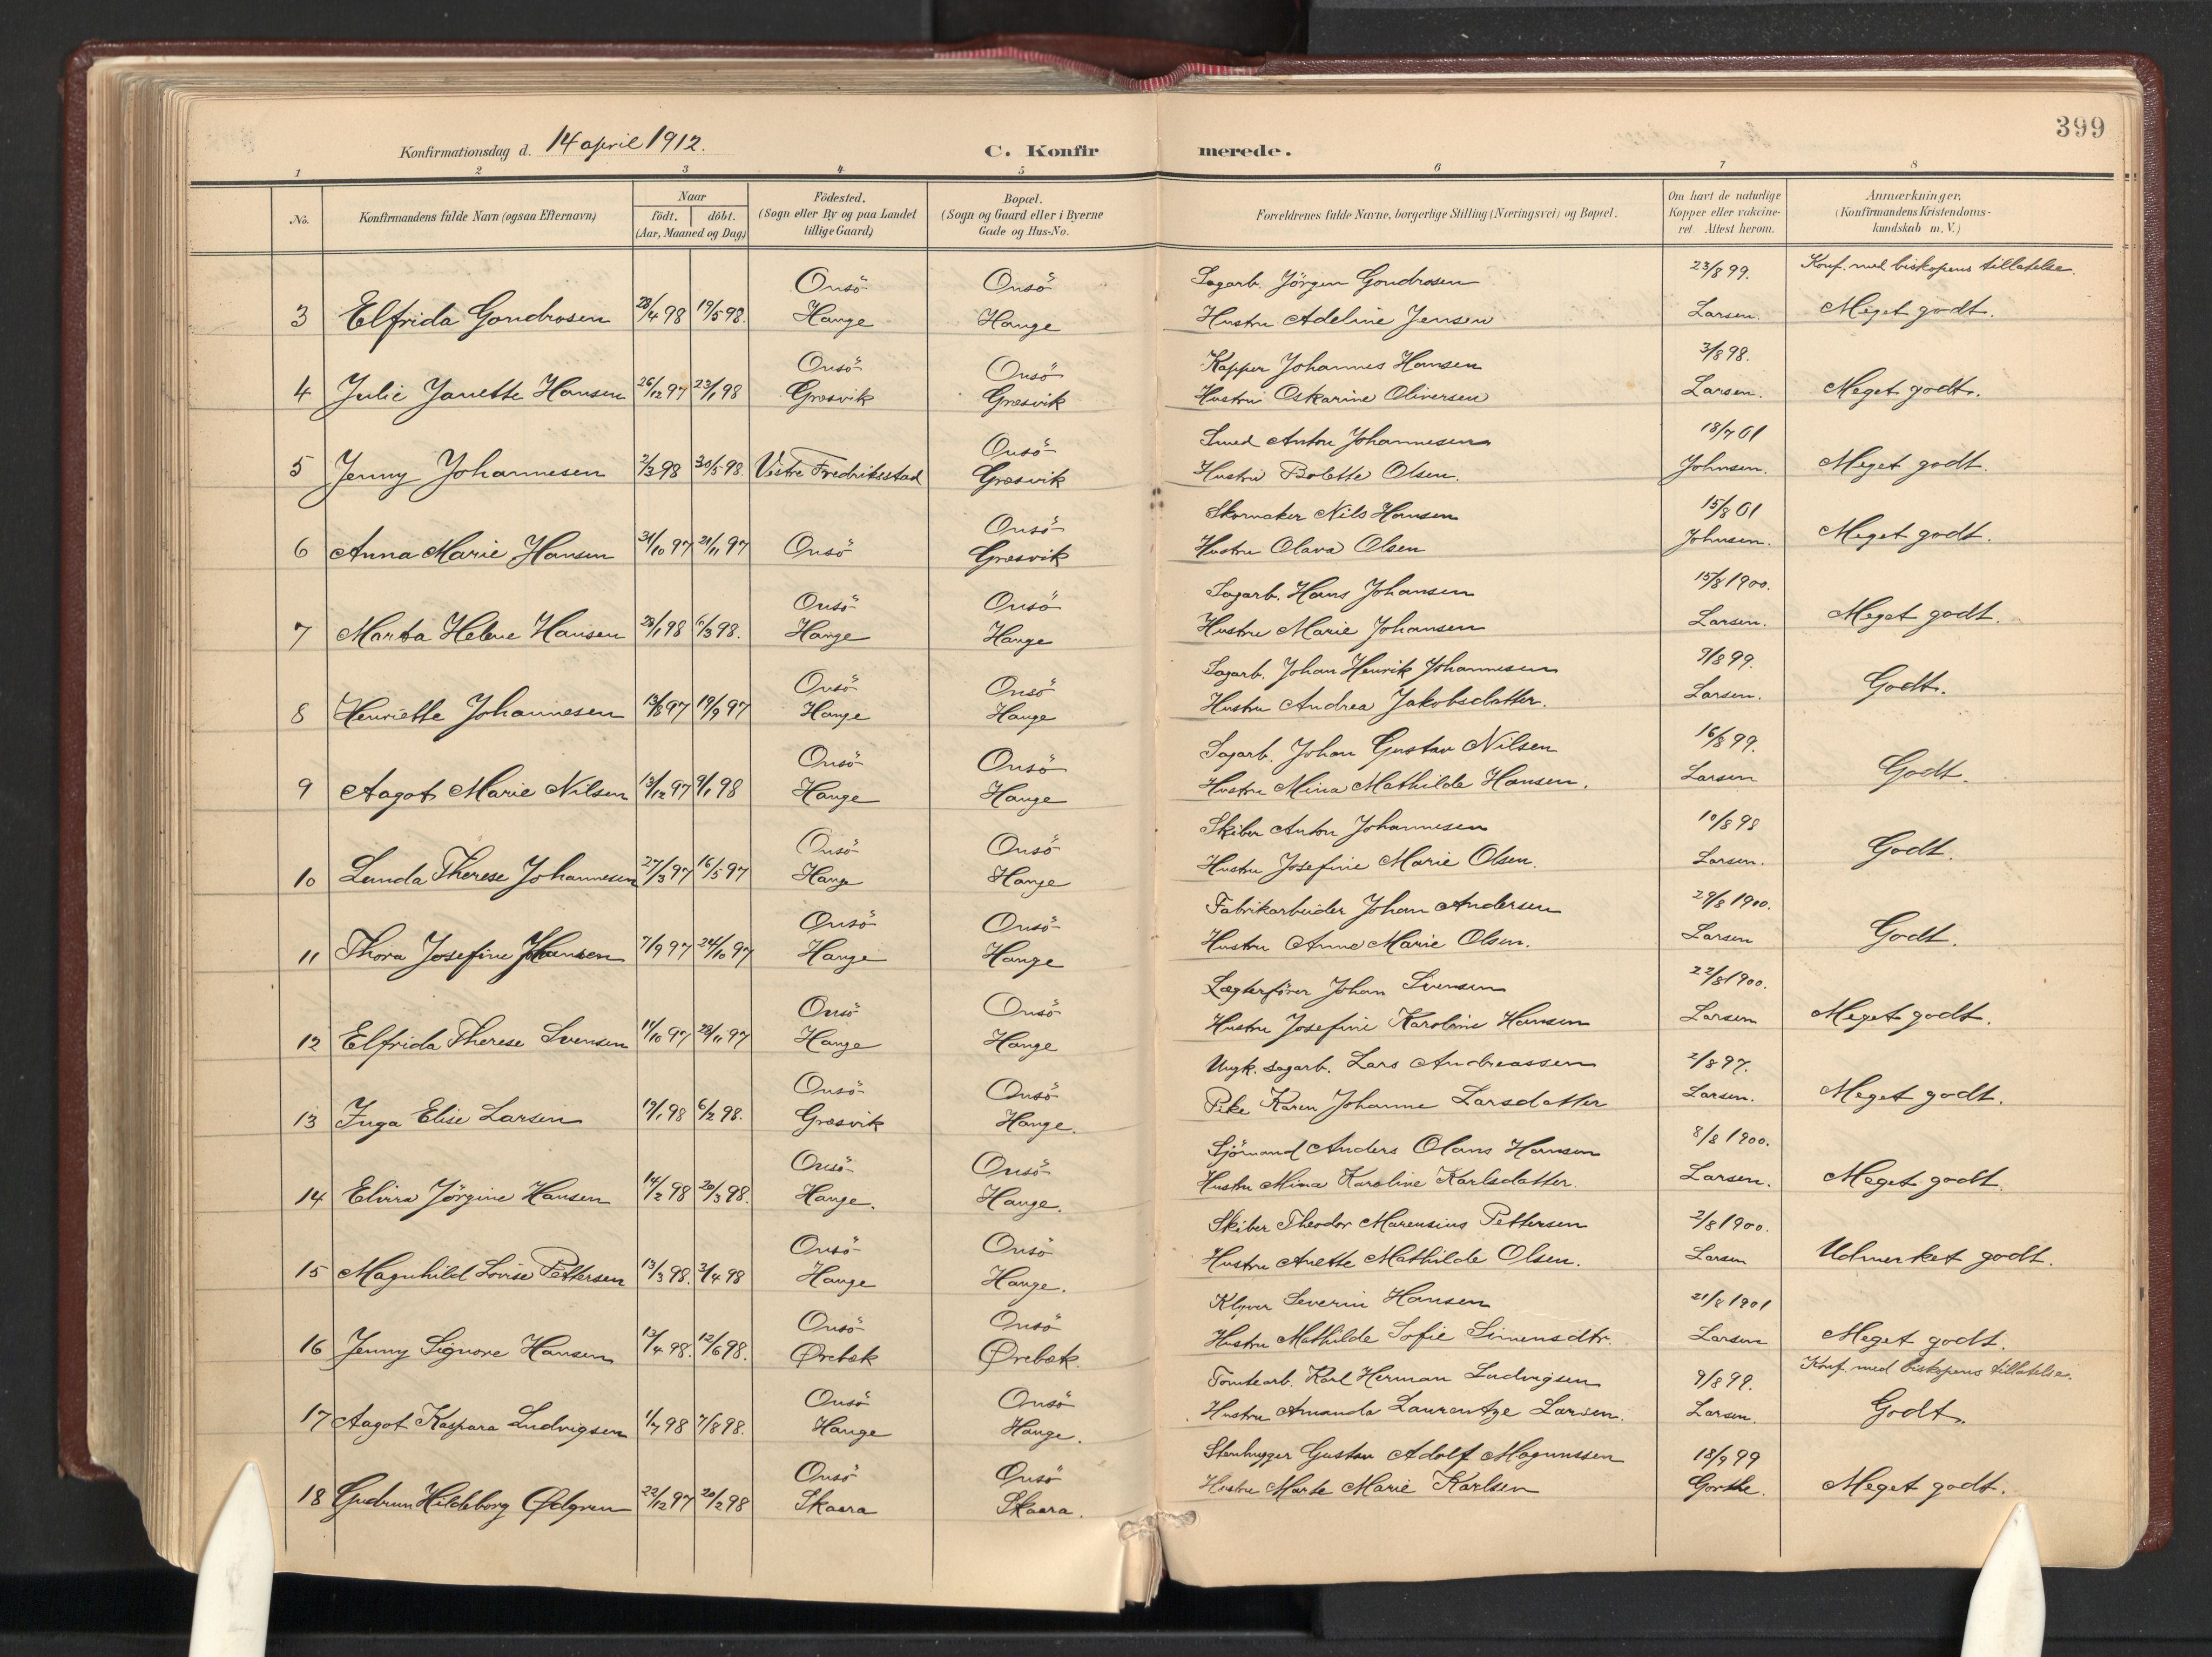 399
Konfirmationsdag d. 14 april 1912. C. Konfirmerede.
1 2 3 4 5 6 7 8
No. Konfirmandens fulde Navn (ogsaa Efternavn) Naar født. døbt. (Aar, Maaned og Dag) Födested. (Sogn eller By og paa Landet tillige Gaard) Bopæl. (Sogn og Gaard eller i Byerne Gade og Hus-No. Forældrenes fulde Navne, borgerlige Stilling (Næringsvei) og Bopæl. Om havt de naturlige Kopper eller vakcineret. Attest herom. Anmærkninger. (Konfirmandens Kristendomskundskab m. V.)
Onsö Onsö Sagarb. Jörgen Gondrosen 23/8 99. Konf. med biskopens tillatelse.
3 Elfrida Gondrosen 28/4 98 19/5 98. Hauge Hauge Hustru Adeline Jensen Larsen. Meget godt.
Onsö Onsö Kapper Johannes Hansen 3/8 98.
4 Julie Janette Hansen 26/12 97 23/1 98 Græsvik Græsvik Hustru Oskarine Oliversen Larsen. Meget godt.
Onsö Smed Anton Johannesen 18/7 01
5 Jenny Johannesen 2/3 98 30/5 98 Vestre Fredriksstad Græsvik Hustru Bolette Olsen. Johnsen. Meget godt.
Onsö Skomaker Nils Hansen 15/8 01
6 Anna Marie Hansen 31/10 97 21/11 97 Onsö Græsvik Hustru Olava Olsen Johnsen. Meget godt.
Onsö Onsö Sagarb. Hans Johansen 15/8 1900.
7 Marta Helene Hansen 28/1 98 6/3 98. Hauge Hauge Hustru Marie Johansen Larsen. Meget godt.
Onsö Onsö Sagarb. Johan Henrik Johannesen 9/8 99.
8 Henriette Johannesen 13/8 97 19/9 97 Hauge Hauge Hustru Andrea Jakobsdatter. Larsen. Godt.
Onsö Onsö Sagarb. Johan Gustav Nilsen 16/8 99.
9 Aagot Marie Nilsen 13/12 97 9/1 98 Hauge Hauge Hustru Mina Mathilde Hansen. Larsen Godt.
Onsö Onsö Skiber Anton Johannesen 10/8 98
10 Lunda Therese Johannesen 27/3 97 16/5 97 Hauge Hauge Hustru Josefine Marie Olsen. Larsen. Godt.
Onsö Onsö Fabrikarbeider Johan Andersen 29/8 1900.
11 Thora Josefine Johansen 7/9 97 24/10 97 Hauge Hauge Hustru Anne Marie Olsen. Larsen Godt.
Onsö Onsö Lægterförer Johan Svensen 22/8 1900.
12 Elfrida Therese Svensen 11/10 97 28/11 97 Hauge Hauge Hustru Josefine Karoline Hansen Larsen Meget godt.
Onsö Onsö Ungk. sagarb. Lars Andreassen 2/8 97.
13 Inga Elise Larsen 19/1 98 6/2 98. Græsvik Hauge. Pike Karen Johanne Larsdatter Larsen. Meget godt.
Onsö Onsö Sjömand Anders Olaus Hansen 8/8 1900.
14 Elvira Jörgine Hansen 14/2 98 20/3 98. Hauge. Hauge. Hustru Mina Karoline Karlsdatter. Larsen. Meget godt.
Onsö Onsö Skiber Theodor Marensius Pettersen 2/8 1900.
15 Magnhild Lovise Pettersen 13/3 98. 3/4 98 Hauge Hauge. Hustru Anette Mathilde Olsen. Larsen Udmerket godt.
Onsö Onsö Klyver Severin Hansen 21/8 1901
16 Jenny Signore Hansen 13/4 98. 12/6 98. Ørebæk Ørebæk. Hustru Mathilde Sofie Simensdtr. Larsen Meget godt.
Onsö Onsö Tomtearb. Karl Herman Ludvigsen 9/8 99. Konf. med biskopens tillatelse.
17 Aagot Kaspara Ludvigsen 1/7 98 7/8 98. Hauge Hauge. Hustru Amanda Laurentze Larsen. Larsen. Godt.
Onsö Onsö Stenhugger Gustav Adolf Magnussen 18/9 99
18 Gudrun Hildeborg Ødgren 22/12 97 20/2 98 Skaara Skaara. Hustru Marte Marie Karlsen Gorthe. Meget godt.